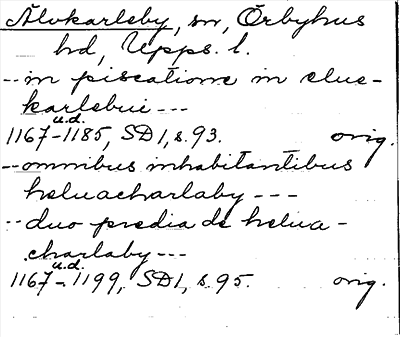 Älvkarleby, sn, Örbyhus
hd, Upps. l.
-- in piscatione in elue-
karlebui ---
1167 u.d. -1185, SD1, s. 93. orig.
-- omnibus inhabitantibus
heluacharlaby ---
-- duo predia de helua-
charlaby ---
1167 u.d. -1199, SD1, s. 95. orig.